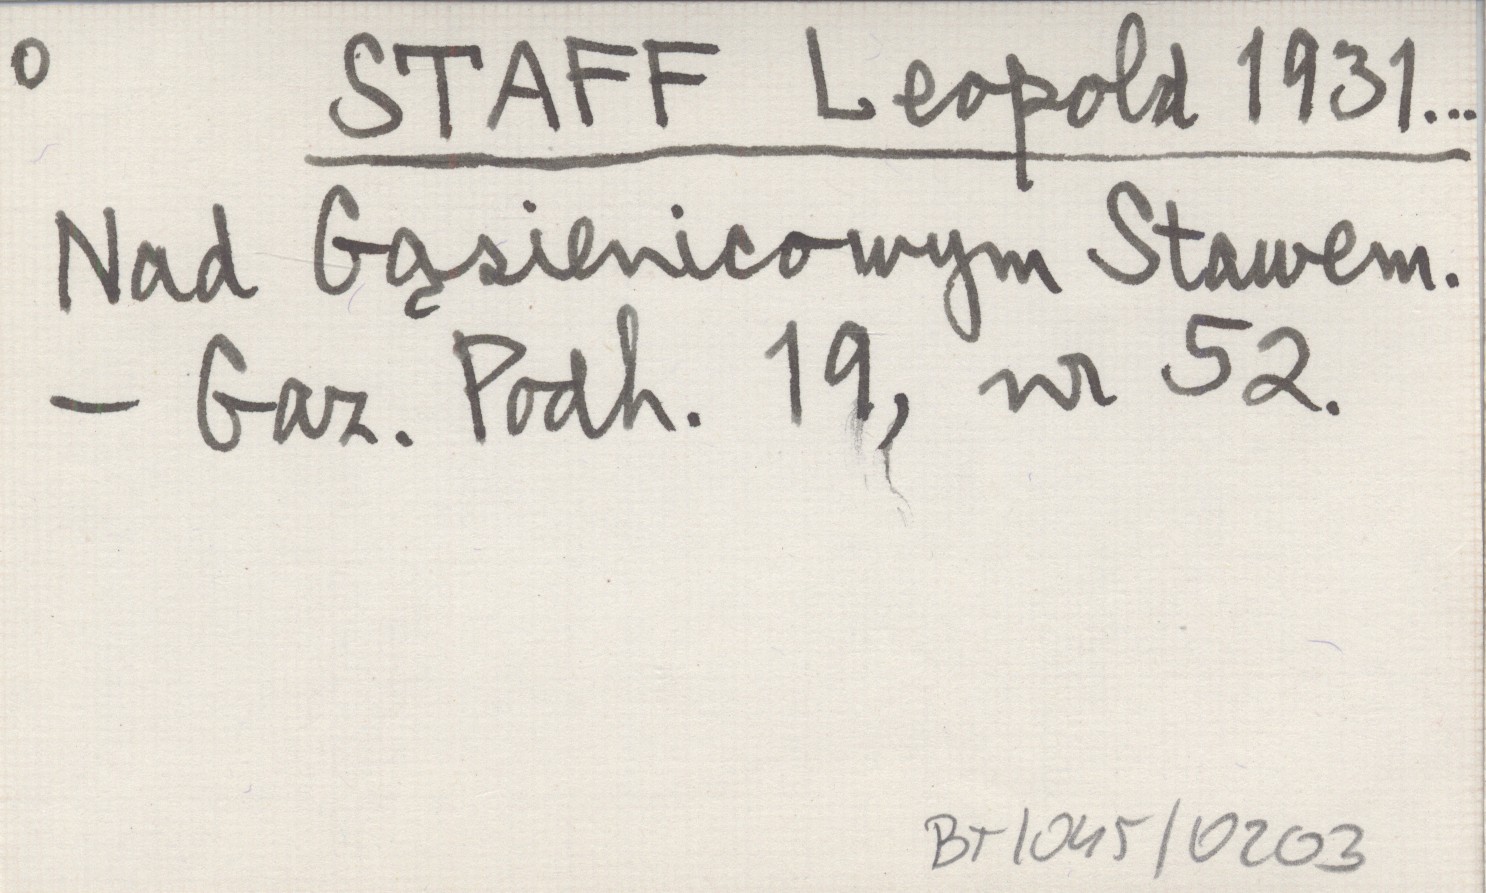 o STAFF Leopold 1931...
Nad Gąsienicowym Stawem.
— Gaz. Podh. 19, nr 52.
BT/045/0203